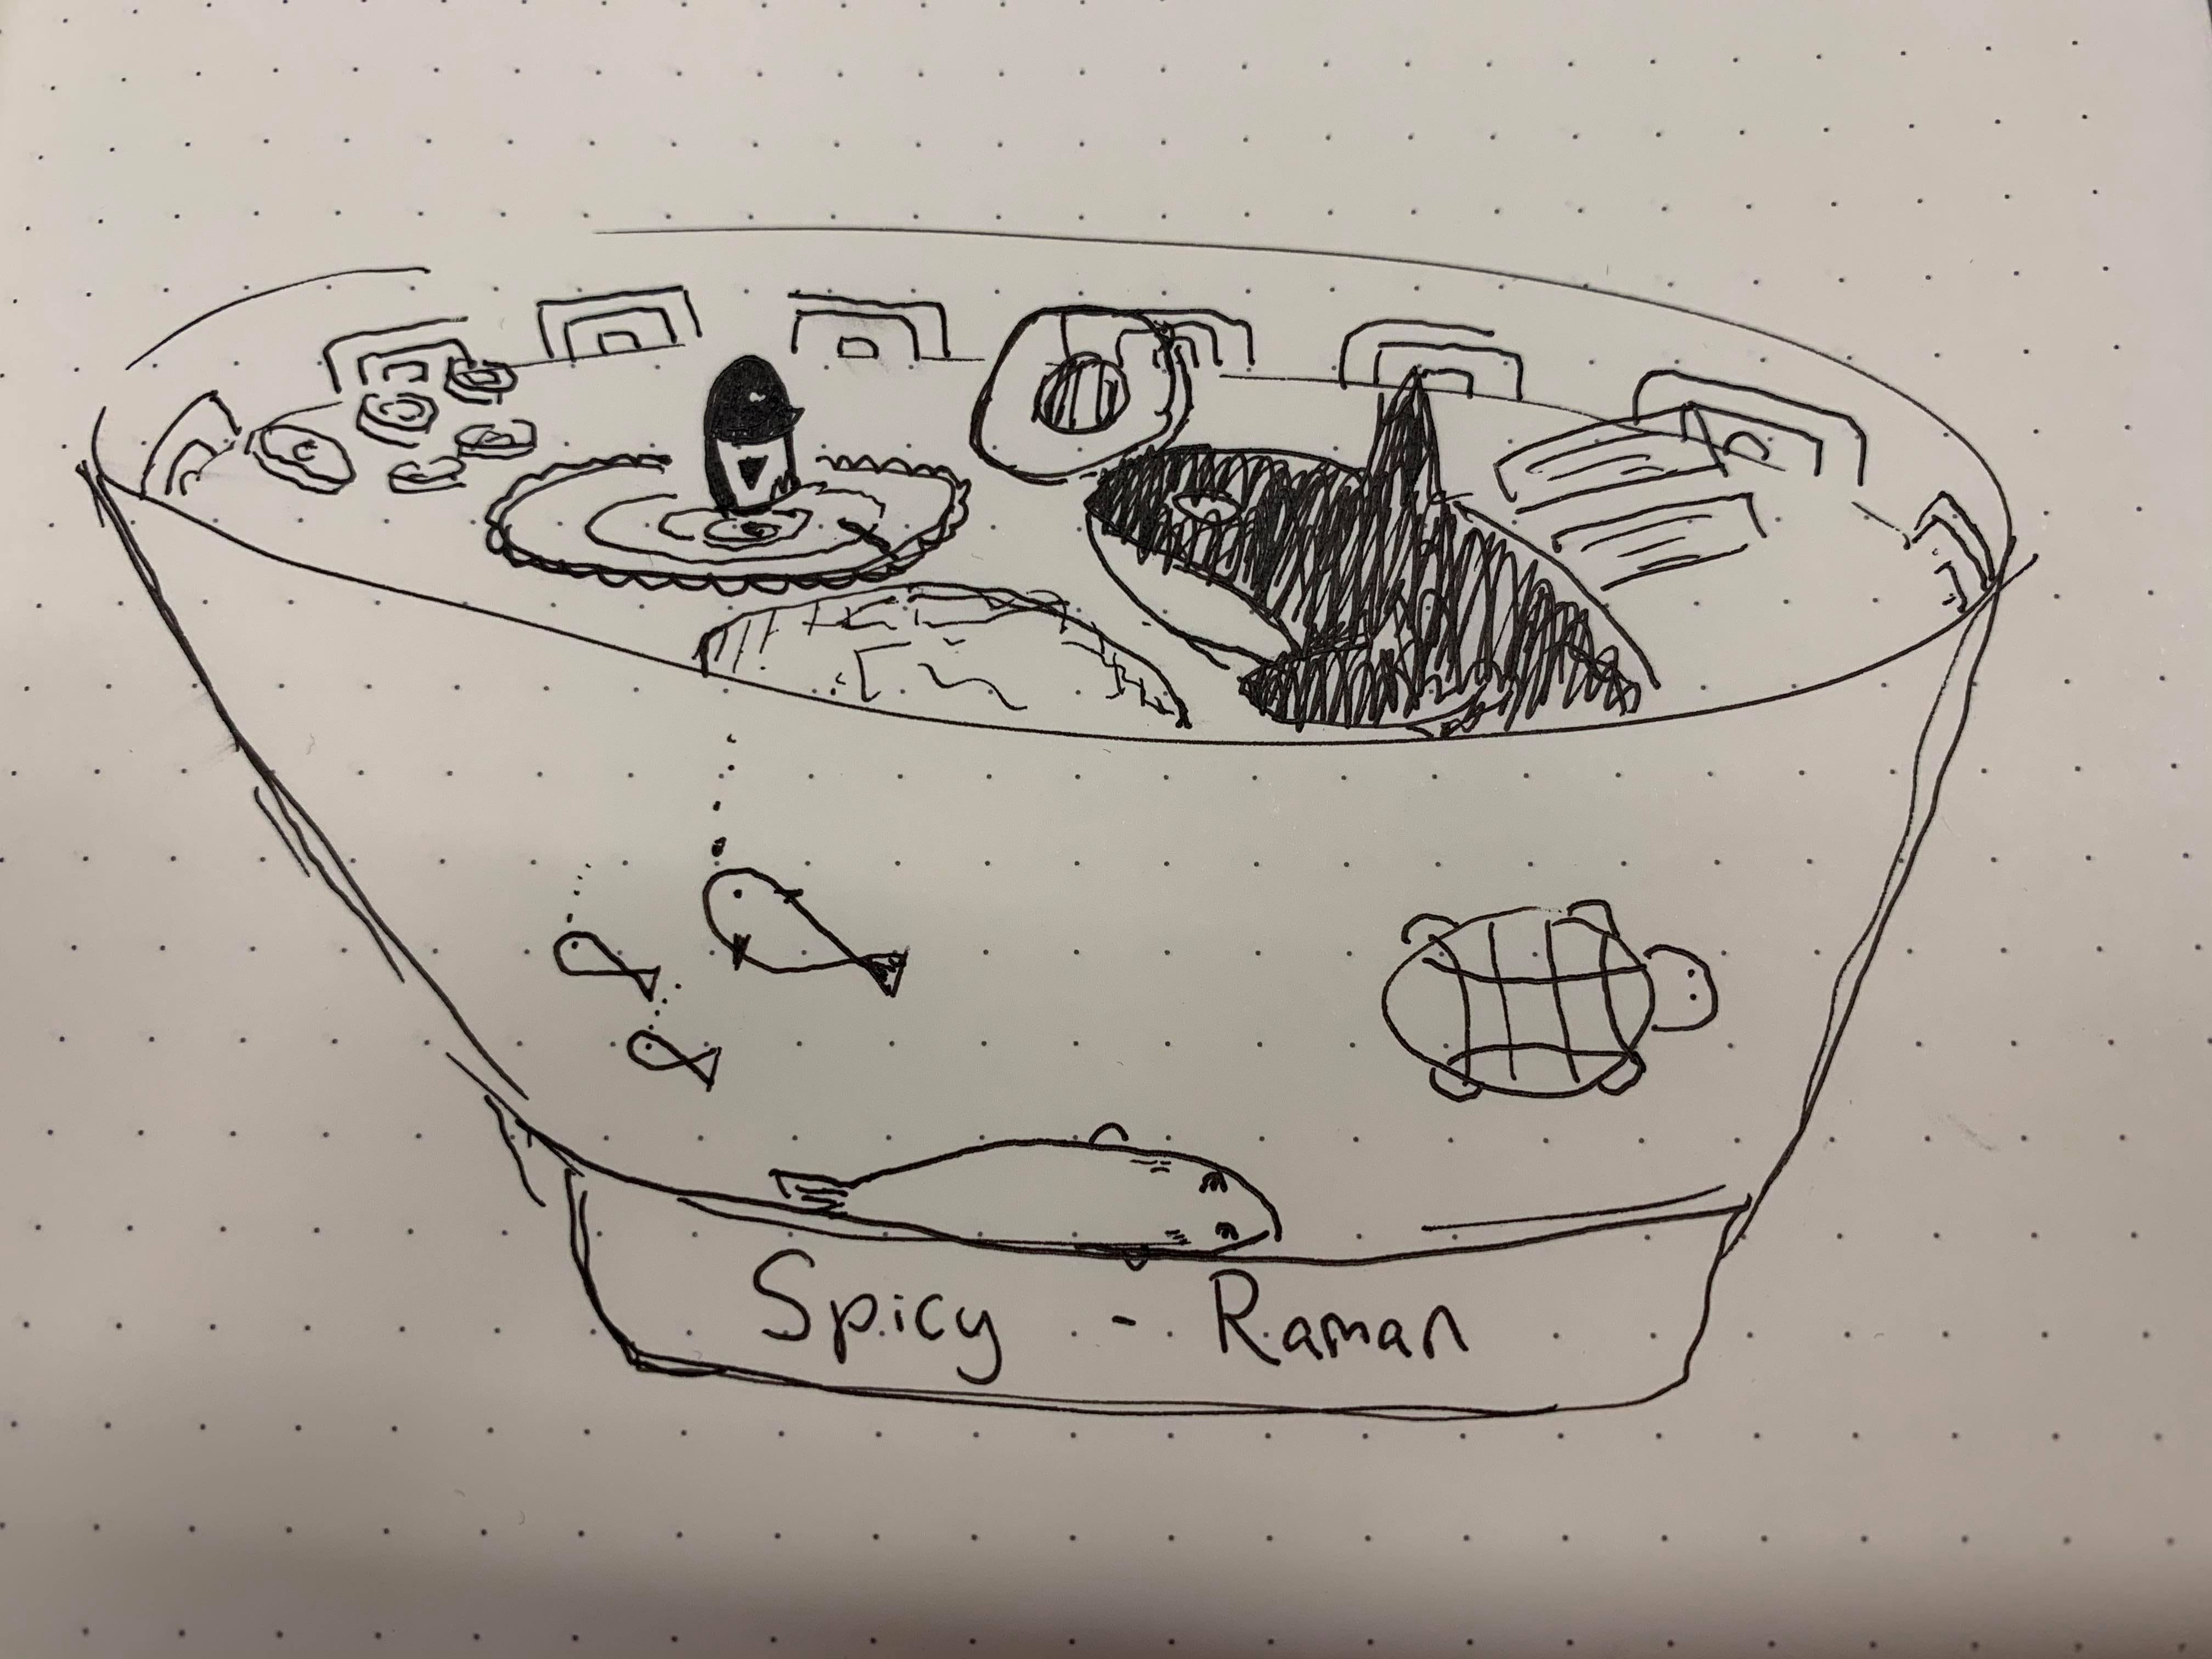 Spicy - Raman